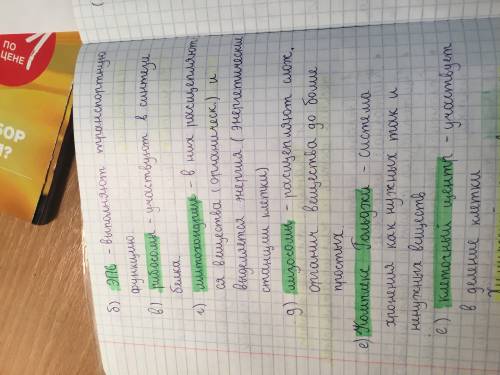 б) ЭПС - выполняют транспортную
функцию
в) рибосомы - участвуют в синтезе
белка.
г) митохондрии - в них расщепляют
ся вещества (органическ.) и
выделяется энергия (энергетические
станции клетки)
д) лизосомы - расщепляют слож.
органич вещества до более
простых
е) Комплекс Гольджи - система
хронения как нужных так и
ненужных веществ
е) клеточный центр - участвует
в деление клетки
ПО
ЦЕНЕ
1
БОР
И?